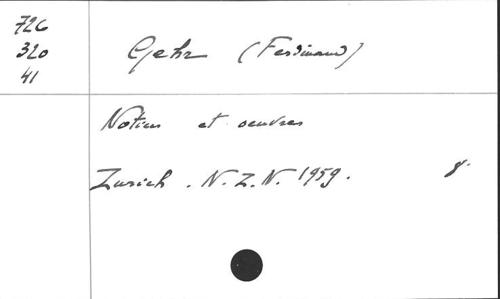 726
320
41
Gehr (Ferdinand)
Notices et oeuvres
Zurich . N.Z.N. 1959. 8.